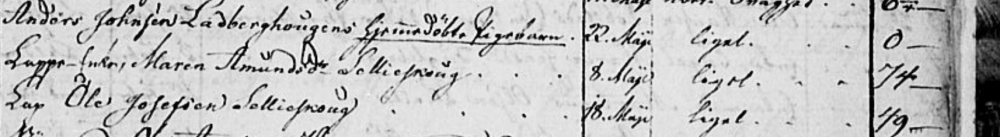 Anders Johnsen Ladberghougens hjemmedöbte Pigebarn . 22. Maji ligel. . . 0 —
Lappe-Enke, Maren Amundsdr Sellieskoug . . . 8. Maji ligel. . . 74 —
Lap Ole Josefsen Sellieskoug . . . . 18. Maji ligel. . . 49 —